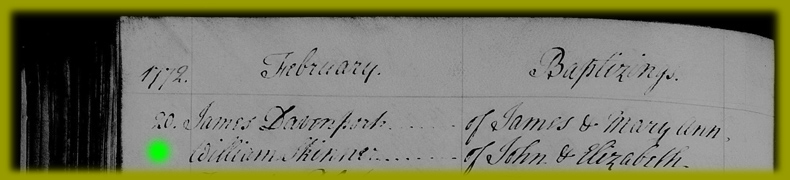 1772. February. Baptizings.
20. James Davenport........ of James & Mary Ann.
William Skinner........ of John & Elizabeth.